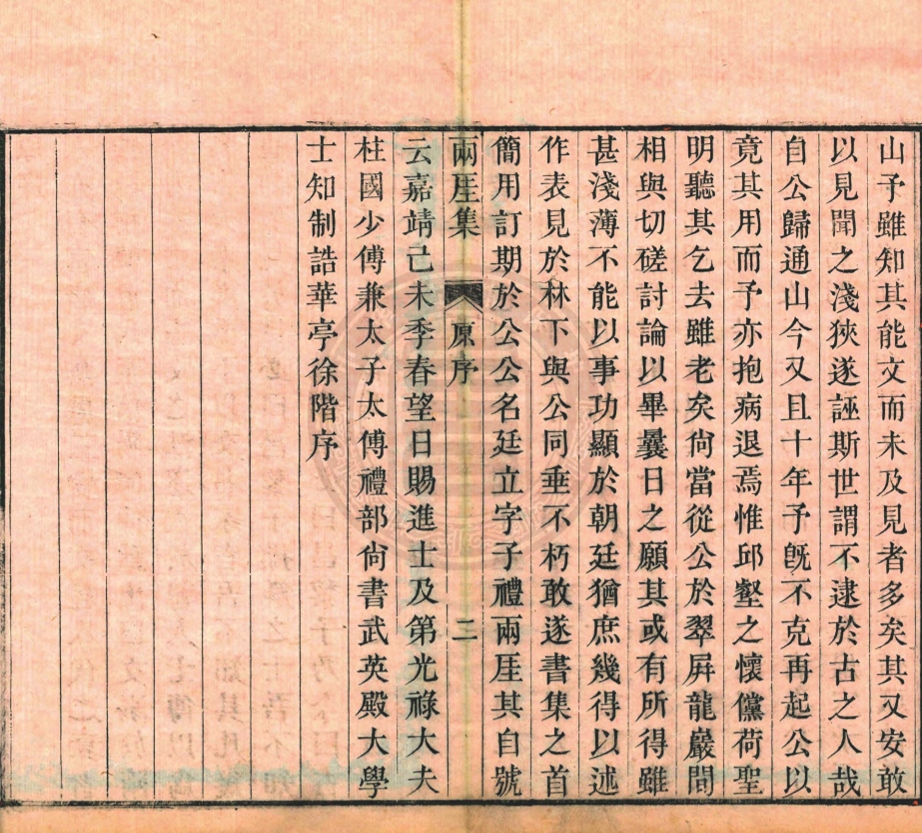 山予雖知其能文而未及見者多矣其又安敢
以見聞之淺狹遂誣斯世謂不逮於古之人哉
自公歸通山今又且十年予既不克再起公以
竟其用而予亦抱病退焉惟邱壑之懷儻荷聖
明聽其乞去雖老矣尙當從公於翠屛龍巖間
相與切磋討論以畢曩日之願其或有所得雖
甚淺薄不能以事功顯於朝廷猶庶幾得以述
作表見於林下與公同垂不朽敢遂書集之首
簡用訂期於公公名廷立字子禮兩厓其自號
兩厓集 原序 二
云嘉靖己未季春望日賜進士及第光祿大夫
柱國少傅兼太子太傅禮部尙書武英殿大學
士知制誥華亭徐階序